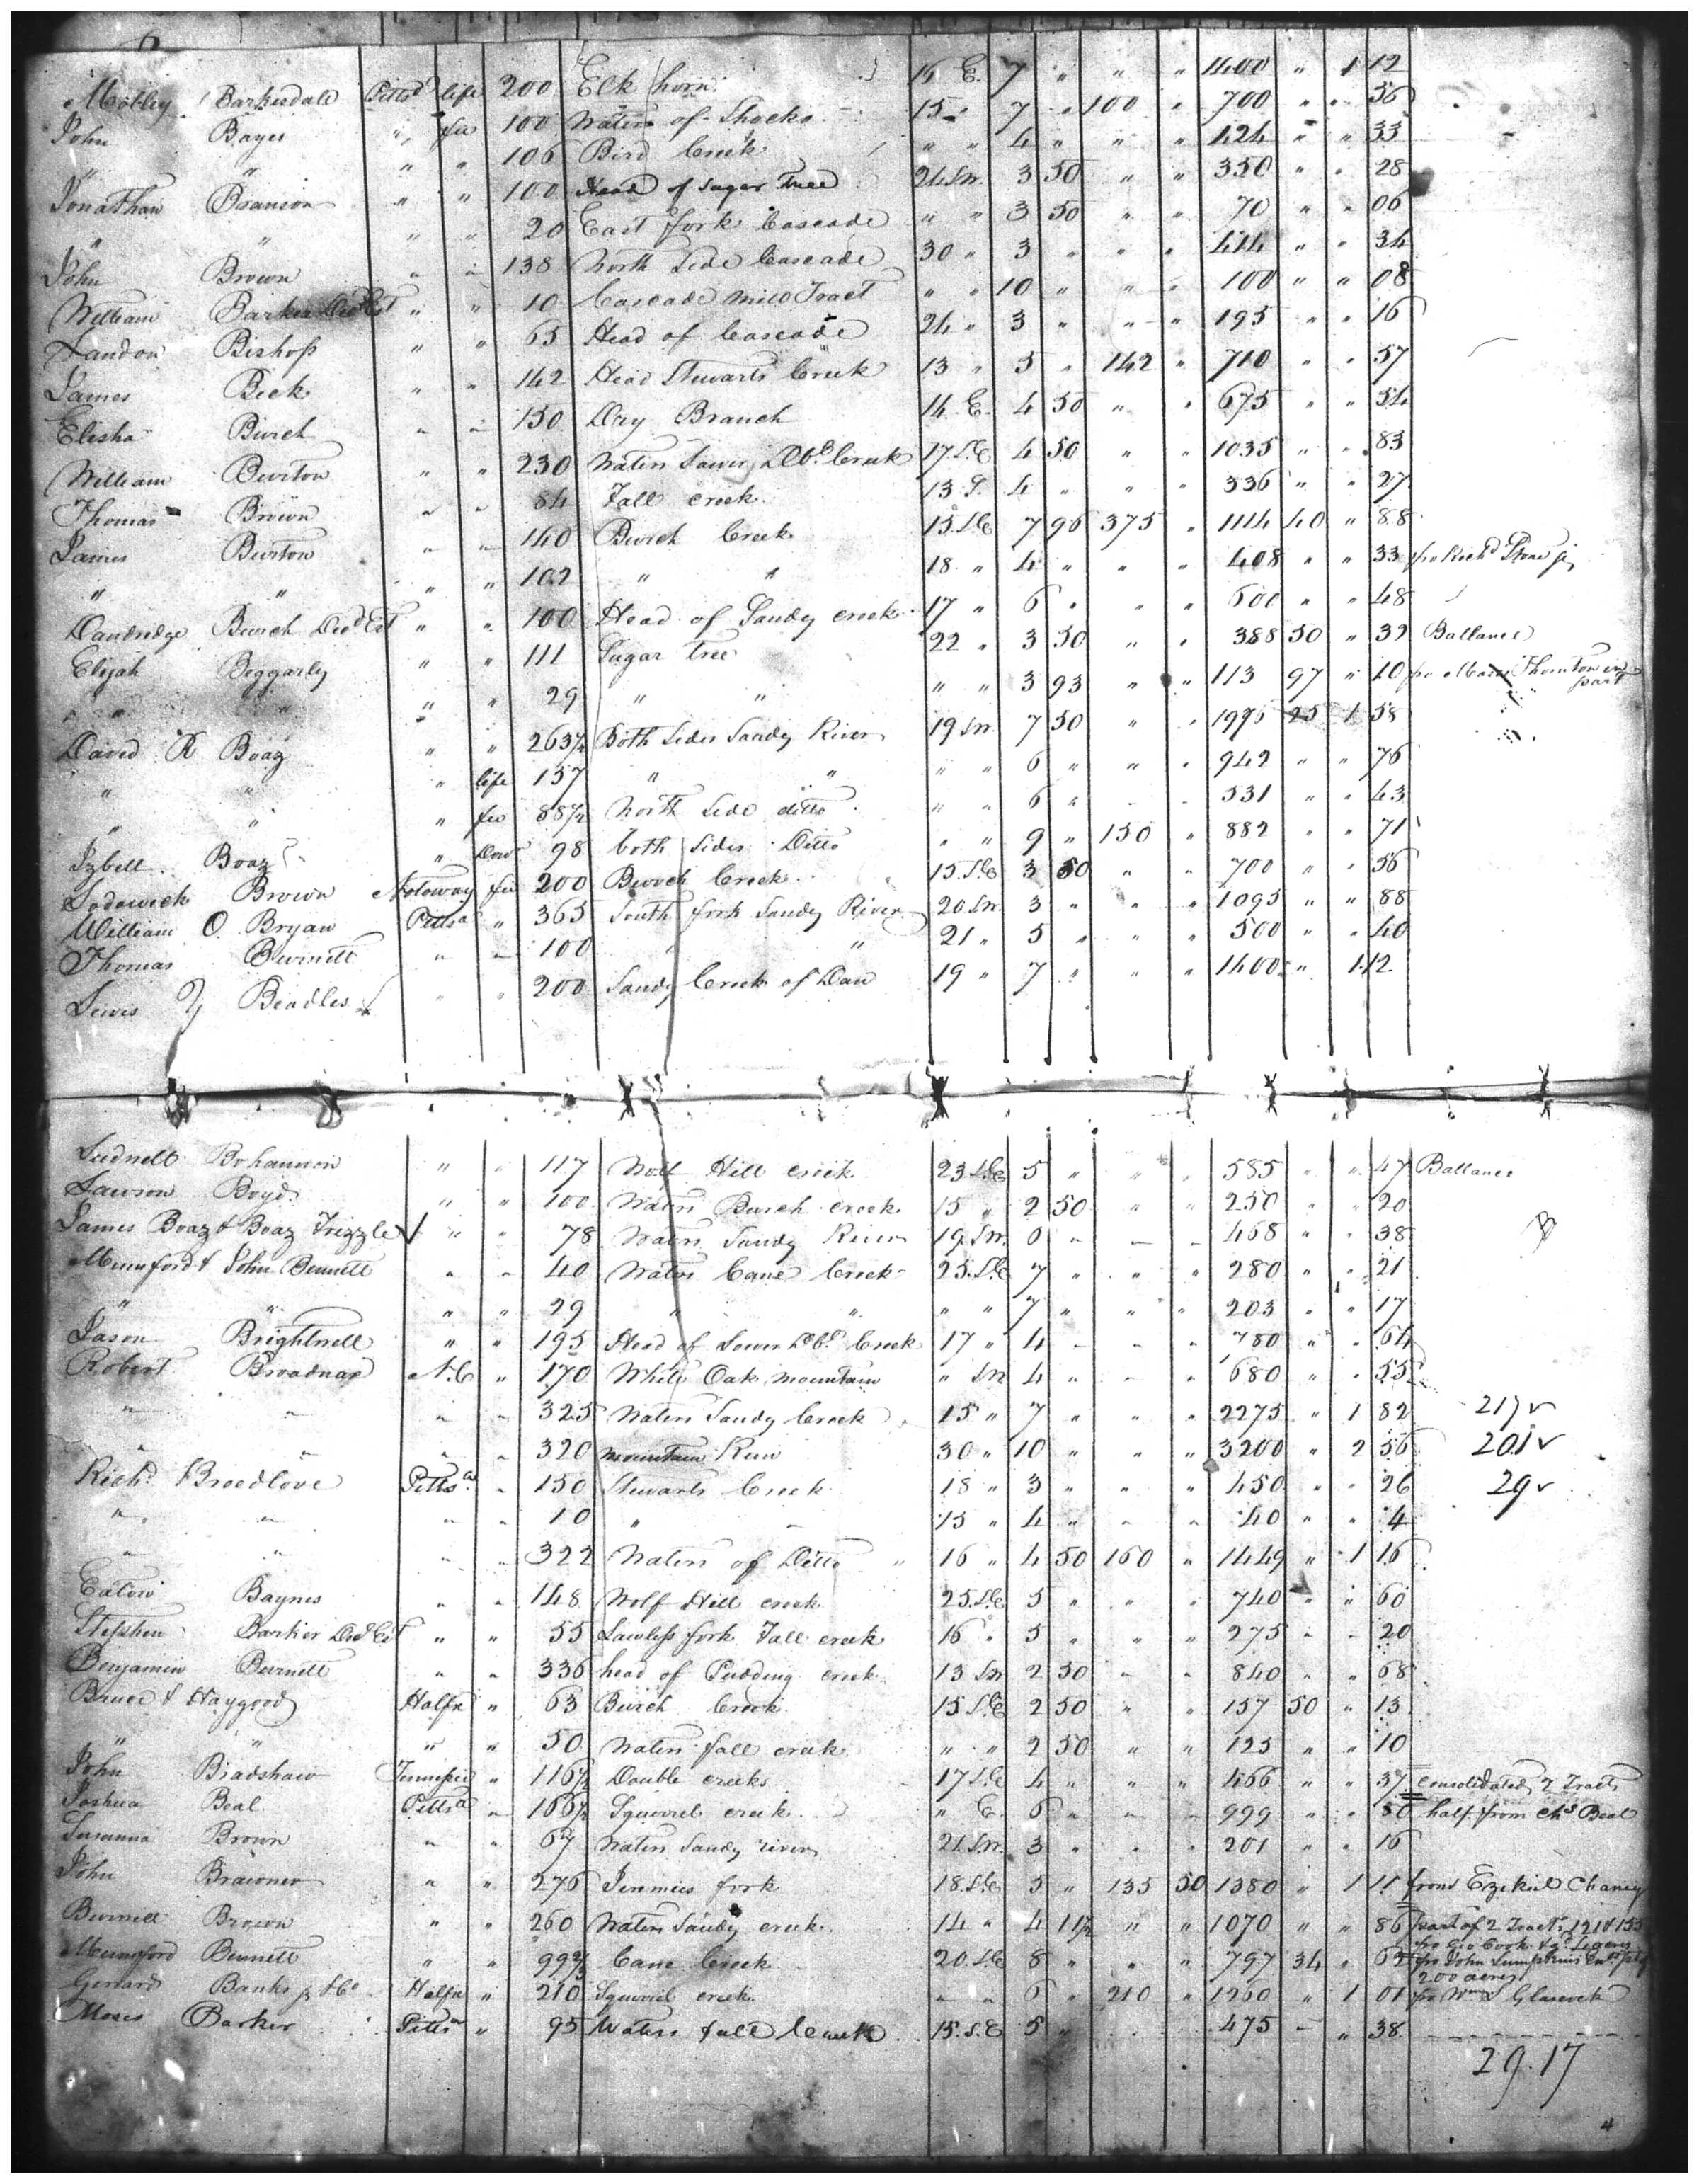 6
Mobley Barksdale Pittsa life 200 Elk horn 16 E. 7 " " " 1400 " 1 12
John Bayes " fee 100 Waters of Shocko 15 " 7 " 100 " 700 " " 56
" " " " 106 Bird Creek " " 4 " " " 424 " " 33
Jonathan Branson " " 100 Head of Sugar Tree 24 S.W. 3 50 " " 350 " " 28
" " " " 20 East fork Cascade " " 3 50 " " 70 " " 06
John Brown " " 138 North Side Cascade 30 " 3 " " " 414 " " 34
William Barker Decd Est " " 10 Cascade Mill Tract " " 10 " " " 100 " " 08
Landon Bishop " " 65 Head of Cascade 24 " 3 " " " 195 " " 16
James Beck " " 142 Head Stewarts Creek 13 " 5 " 142 " 710 " " 57
Elisha Burch " " 150 Dry Branch 14 E. 4 50 " " 675 " " 54
William Burton " " 230 Waters Lower Dbl Creek 17 S.E 4 50 " " 1035 " " 83
Thomas Brown " " 84 Fall creek 13 S. 4 " " " 336 " " 27
James Burton " " 140 Burch Creek 15 S.E 7 96 375 " 1114 40 " 88
" " " " 102 " " 18 " 4 " " " 408 " " 33 fro Richd Stone jr
Dandridge Burch Decd Est " " 100 Head of Sandy creek 17 " 6 " " " 600 " " 48
Elijah Beggarly " " 111 Sugar Tree 22 " 3 50 " " 388 50 " 32 Ballance
" " " " 29 " " " " 3 93 " " 113 97 " 10 fro Moses Thornton in part
David R Boaz " " 263½ Both Sides Sandy River 19 S.W. 7 50 " " 1976 25 1 58
" " " life 157 " " " " 6 " " " 942 " " 76
" " " fee 88½ North Side ditto " " 6 " " " 531 " " 43
Izbell Boaz " Dow 98 both Sides Ditto " " 9 " 150 " 882 " " 71
Lodowick Brown Notoway fee 200 Burch Creek 15 S.E 3 50 " " 700 " " 56
William O. Bryan Pittsa " 365 South fork Sandy River 20 S.W. 3 " " " 1095 " " 88
Thomas Burnett " " 100 " " 21 " 5 " " " 500 " " 40
Lewis Y Beadles " " 200 Sandy Creek of Dan 19 " 7 " " " 1400 " 1 12
Ludwell Bohannon " " 117 Wolf Hill creek 23 S.E 5 " " " 585 " " 47 Ballance
Lawson Boyd " " 100 Waters Burch creek 15 " 2 50 " " 250 " " 20
James Boaz & Boaz Frizzle " " 78 Waters Sandy River 19 S.W. 6 " " " 468 " " 38
Mumford & John Bennett " " 40 Waters Cane Creek 25 S.E 7 " " " 280 " " 21
" " " " 29 " " " " 7 " " " 203 " " 17
Jason Brightwell " " 195 Head of Lower Dbl Creek 17 " 4 " " " 780 " " 64
Robert Broadnax N.C " 170 White Oak mountain " S.W 4 " " " 680 " " 55
" " " " 325 Waters Sandy Creek 15 " 7 " " " 2275 " 1 82 217 v
" " " " 320 mountain Run 30 " 10 " " " 3200 " 2 56 201 v
Richd Breedlove Pittsa " 150 Stewarts Creek 18 " 3 " " " 450 " " 26 29 v
" " " " 10 " " 15 " 4 " " " 40 " " 4
" " " " 322 Waters of Ditto 16 " 4 50 160 " 1449 " 1 16
Eaton Baynes " " 148 Wolf Hill creek 25 S.E 5 " " " 740 " " 60
Stephen Barker Decd Est " " 55 Lawless fork Fall creek 16 " 5 " " " 275 " " 20
Benjamin Burnett " " 336 head of Pudding creek 13 S.W 2 50 " " 840 " " 68
Bruce & Haygood Halfx " 63 Burch Creek 15 S.E 2 50 " " 157 50 " 13
" " " " 50 Waters fall creek " " 2 50 " " 125 " " 10
John Bradshaw Tennessee " 116½ Double creeks 17 S.E 4 " " " 466 " " 37 consolidated 2 Tracts
Joshua Beal Pittsa " 166½ Squirrel creek " E. 6 " " " 999 " " 80 half from Chs Beal
Susanna Brown " " 67 Waters Sandy river 21 S.W. 3 " " " 201 " " 16
John Brawner " " 276 Jeremies fork 18 S.E 5 " 135 50 1380 " 1 11 from Ezekiel Chaney
Burwell Brown " " 260 Waters Sandy creek 14 " 4 11½ " " 1070 " " 86 part of 2 Tracts 121 & 133
fro Geo Cook
Mumford Bennett " " 99⅔ Cane Creek 20 S.E 8 " " " 797 34 " 63 fro John Lumpkins
200 acres
Gerrard Banks & Co Halfx " 210 Squirrel creek " " 6 " 210 " 1260 " 1 01 fro Wm Glascock
Moses Barker Pittsa " 95 Waters fall Creek 15 S.E 5 " 475 " " 38
29.17
4